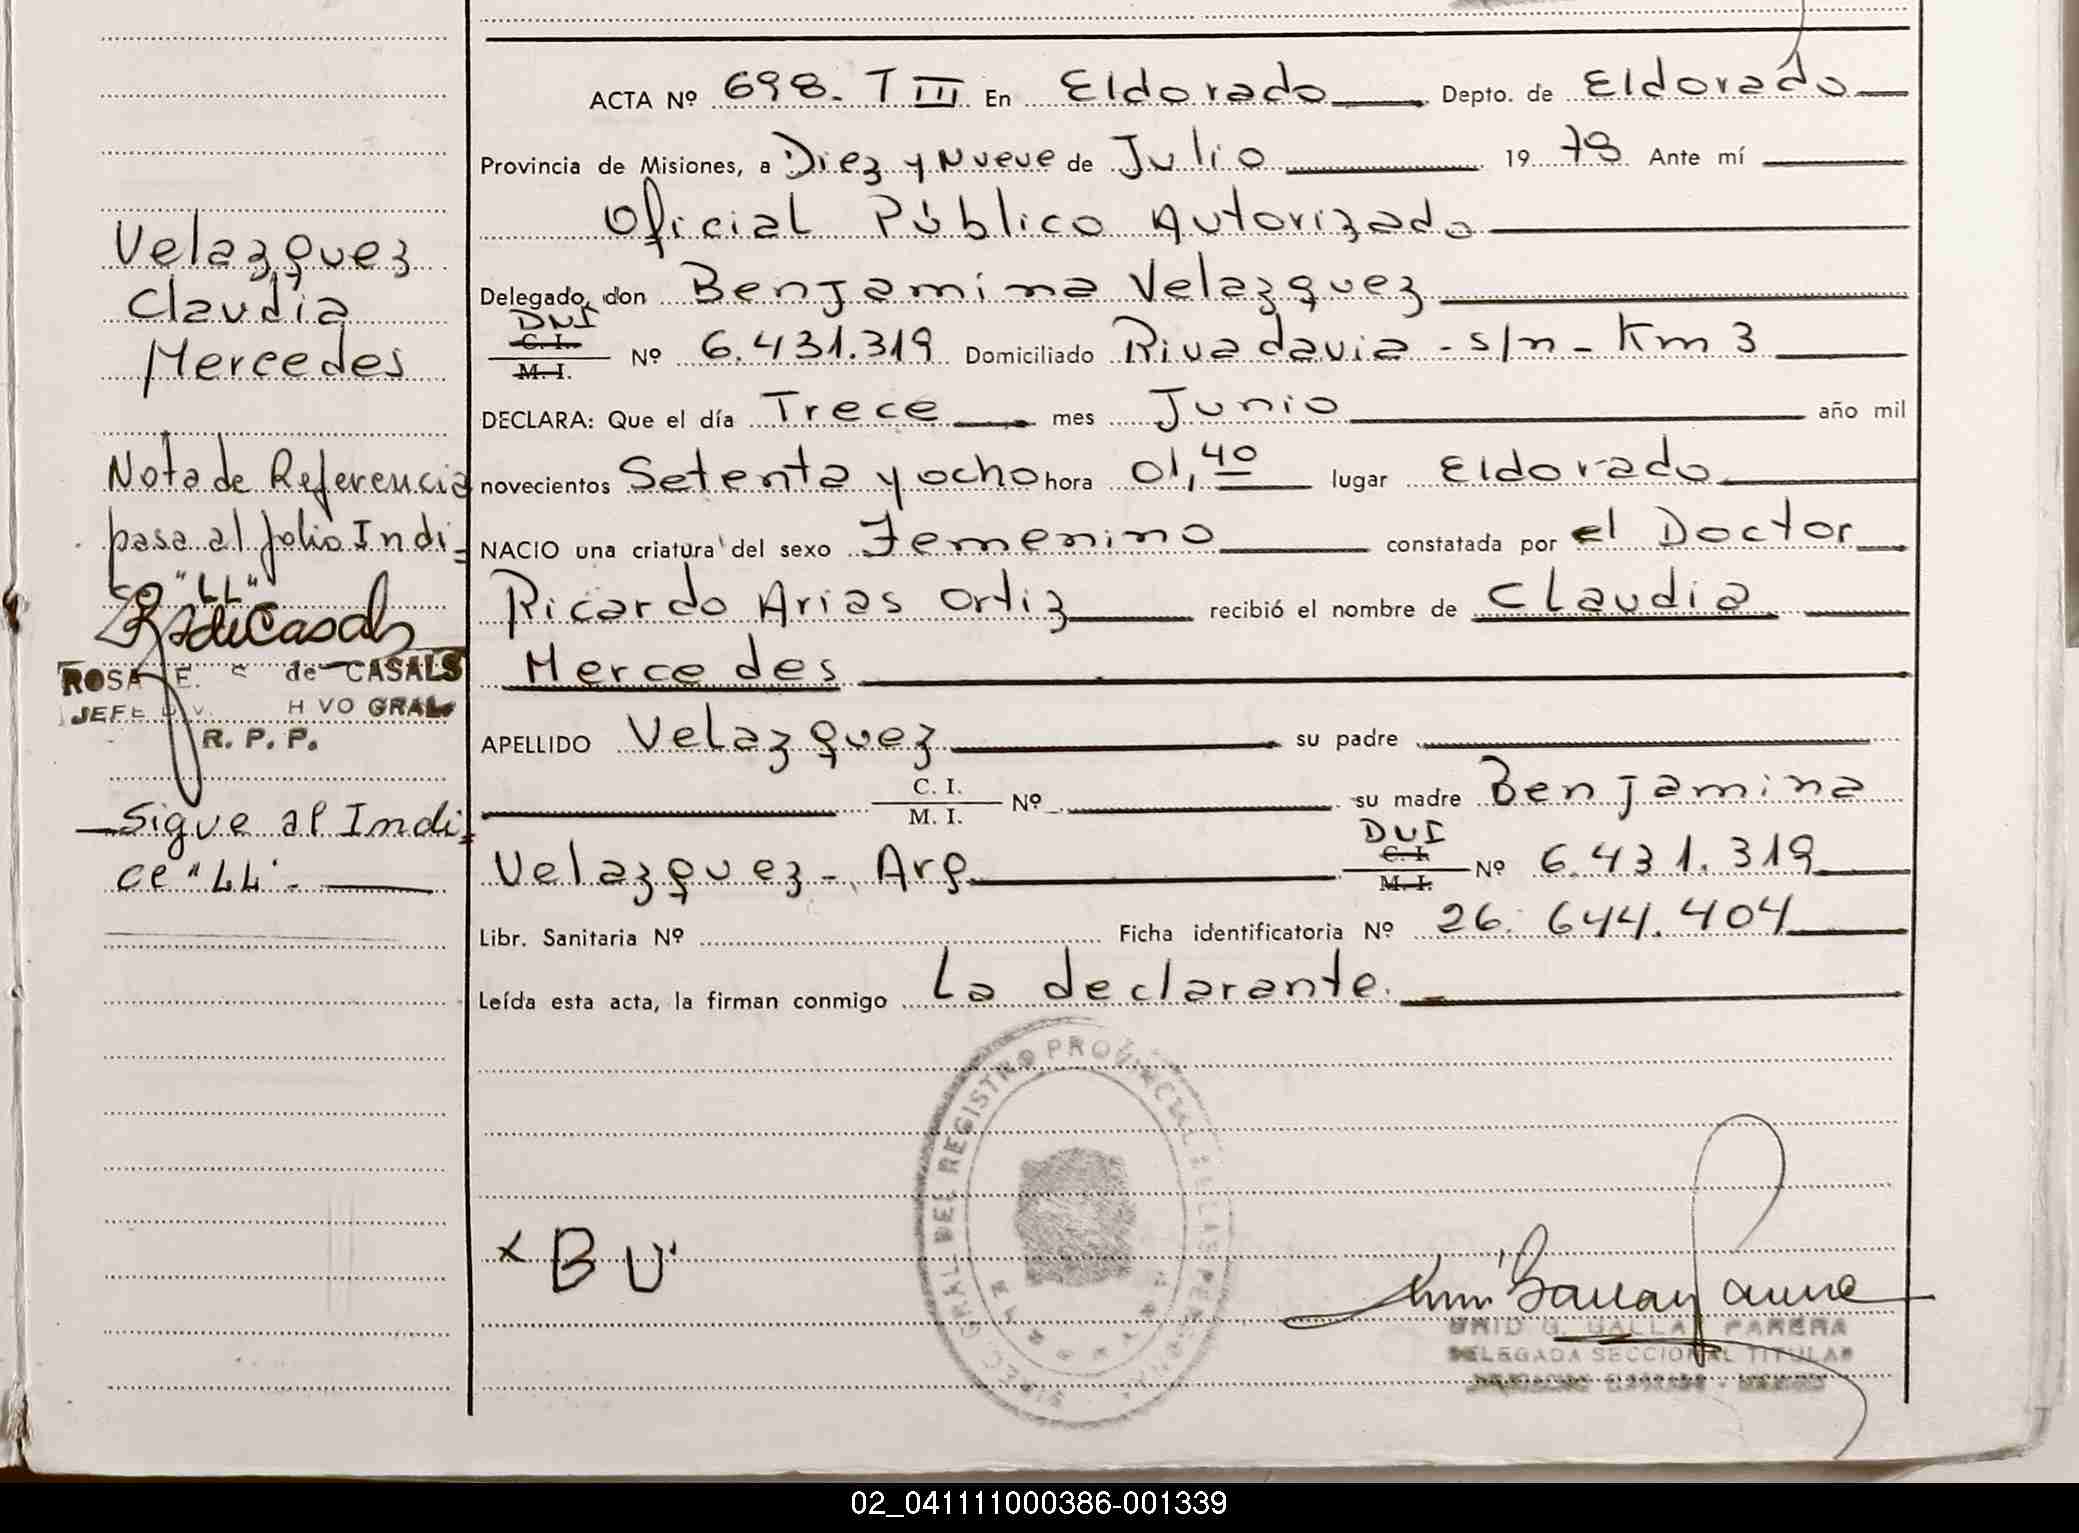 ACTA Nº 698. T III En Eldorado Depto. de Eldorado
Provincia de Misiones, a Diez y Nueve de Julio 19 78 Ante mí
Oficial Público Autorizado
Delegado, don Benjamina Velazquez
DNI C. I. M. I. Nº 6.431.319 Domiciliado Rivadavia - s/n - Km 3
DECLARA: Que el día Trece mes Junio año mil
novecientos Setenta y ocho hora 01,40 lugar Eldorado
NACIO una criatura del sexo Femenino constatada por el Doctor
Ricardo Arias Ortiz recibió el nombre de Claudia
Mercedes
APELLIDO Velazquez su padre
C. I. M. I. Nº su madre Benjamina
Velazquez - Arg DNI C. I. M. I. Nº 6.431.319
Libr. Sanitaria Nº Ficha identificatoria Nº 26.644.404
Leída esta acta, la firman conmigo La declarante.
Velazquez
Claudia
Mercedes
Nota de Referencia
pasa al folio Indi=
ce "LL"
ROSA E. S de CASALS
JEFE
GRAL.
R. P. P.
Sigue al Indi=
ce "LL".
x B V
GRAL DEL REGISTRO PROVINCIAL DE LAS PERSONAS
PARERA
DELEGADA SECCIONAL TITULAR
02_041111000386-001339